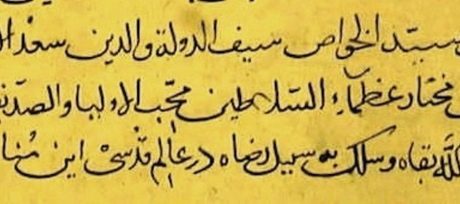 سید الخواص سیف الدولة والدین سعد ال
مختار عظمآء السلاطین محّب الاولیا والصدیقـ
اللّه بقاه وسلك به سبیل رضاه در عالم قدسی این مُنا